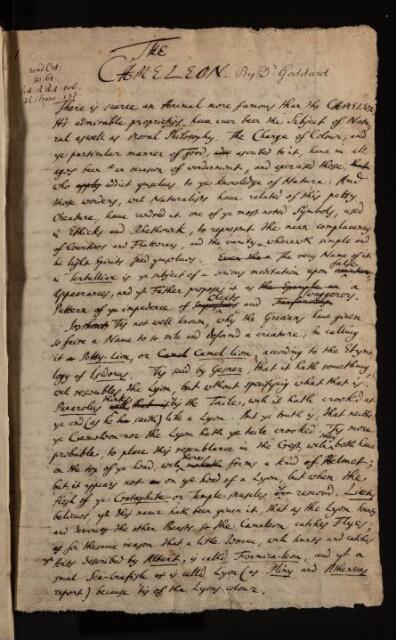 THE
CAMELEON. By Dr Goddard
read Oct:
There is scarce an Animal more famous than the CAMELEON
His admirable proprieties, have ever been the Subject of Natu-
ral aswell as Moral Philosophy. The Change of Colour, and
ye particular manner of food, ascribed to it, have in all
ages been an occasion of wonderment, and exercised those,
who addict ymselves to ye knowledge of Nature: And
those wonders, wch Naturalists have related of this paltry
Creature, have rendred it one of ye most noted Symbols, used
in Ethicks and Rhetorick, to represent the mean complacency
of Courtiers and Flatterers, and the vanity wherewth simple and
light Spirits feed ymselves. The very Name of it
in Tertullian is ye subject of a serious meditation upon false
Appearances, and yt Father proposes it as a
Pattern of ye impudence of Cheats and
Tis not well known, why the Grecians have given
so fierce a Name to so vile and deformd a creature, in calling
it a Petty-Lion, or Camel Lion, according to the Etymo-
logy of Isidorus. Tis said by Gesner, that it hath something,
wch resembles the Lyon, but without specifying what that is.
Panarolus thinks tis by the Taile, wch it hath crooked at
ye end (as he has saith) like a Lyon. But ye truth is, that neither
ye Cameleon nor the Lyon hath ye taile crooked. Tis more
probable, to place this resemblance in the Crest, wch they both have
on the top of ye head, wch forms a kind of Helmet;
but it appears not on ye head of a Lyon, but when the
flesh of ye Crotaphite or Temple-muscles is removd. Licetus
believes, yt this name hath been given it, that as the Lyon hunts
and devours the other Beasts, so the Cameleon catches Flyes;
as for the same reason that a little Worm, wch hunts and catches
ye Ants described by Albert, is called Formica-leon, and yt a
small Sea-Crafish is called Lyon (as Pliny and Atheneus
report) because tis of the Lyons colour.